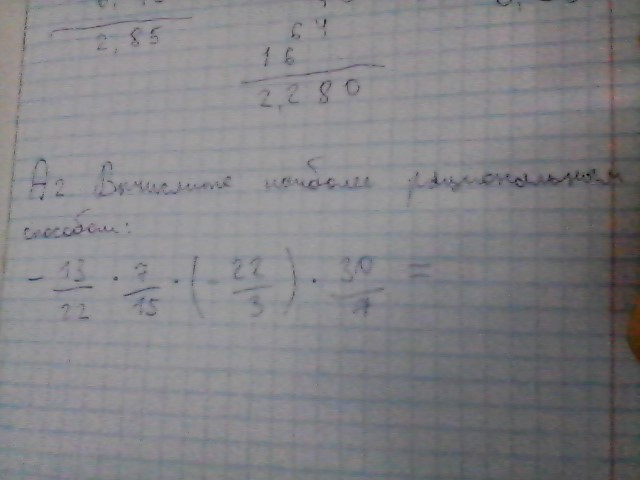 2,85
64
16
2,280
А2 Вычислите наиболее рациональным
способом:
- 13/22 · 7/15 · (- 22/3) · 30/7 =